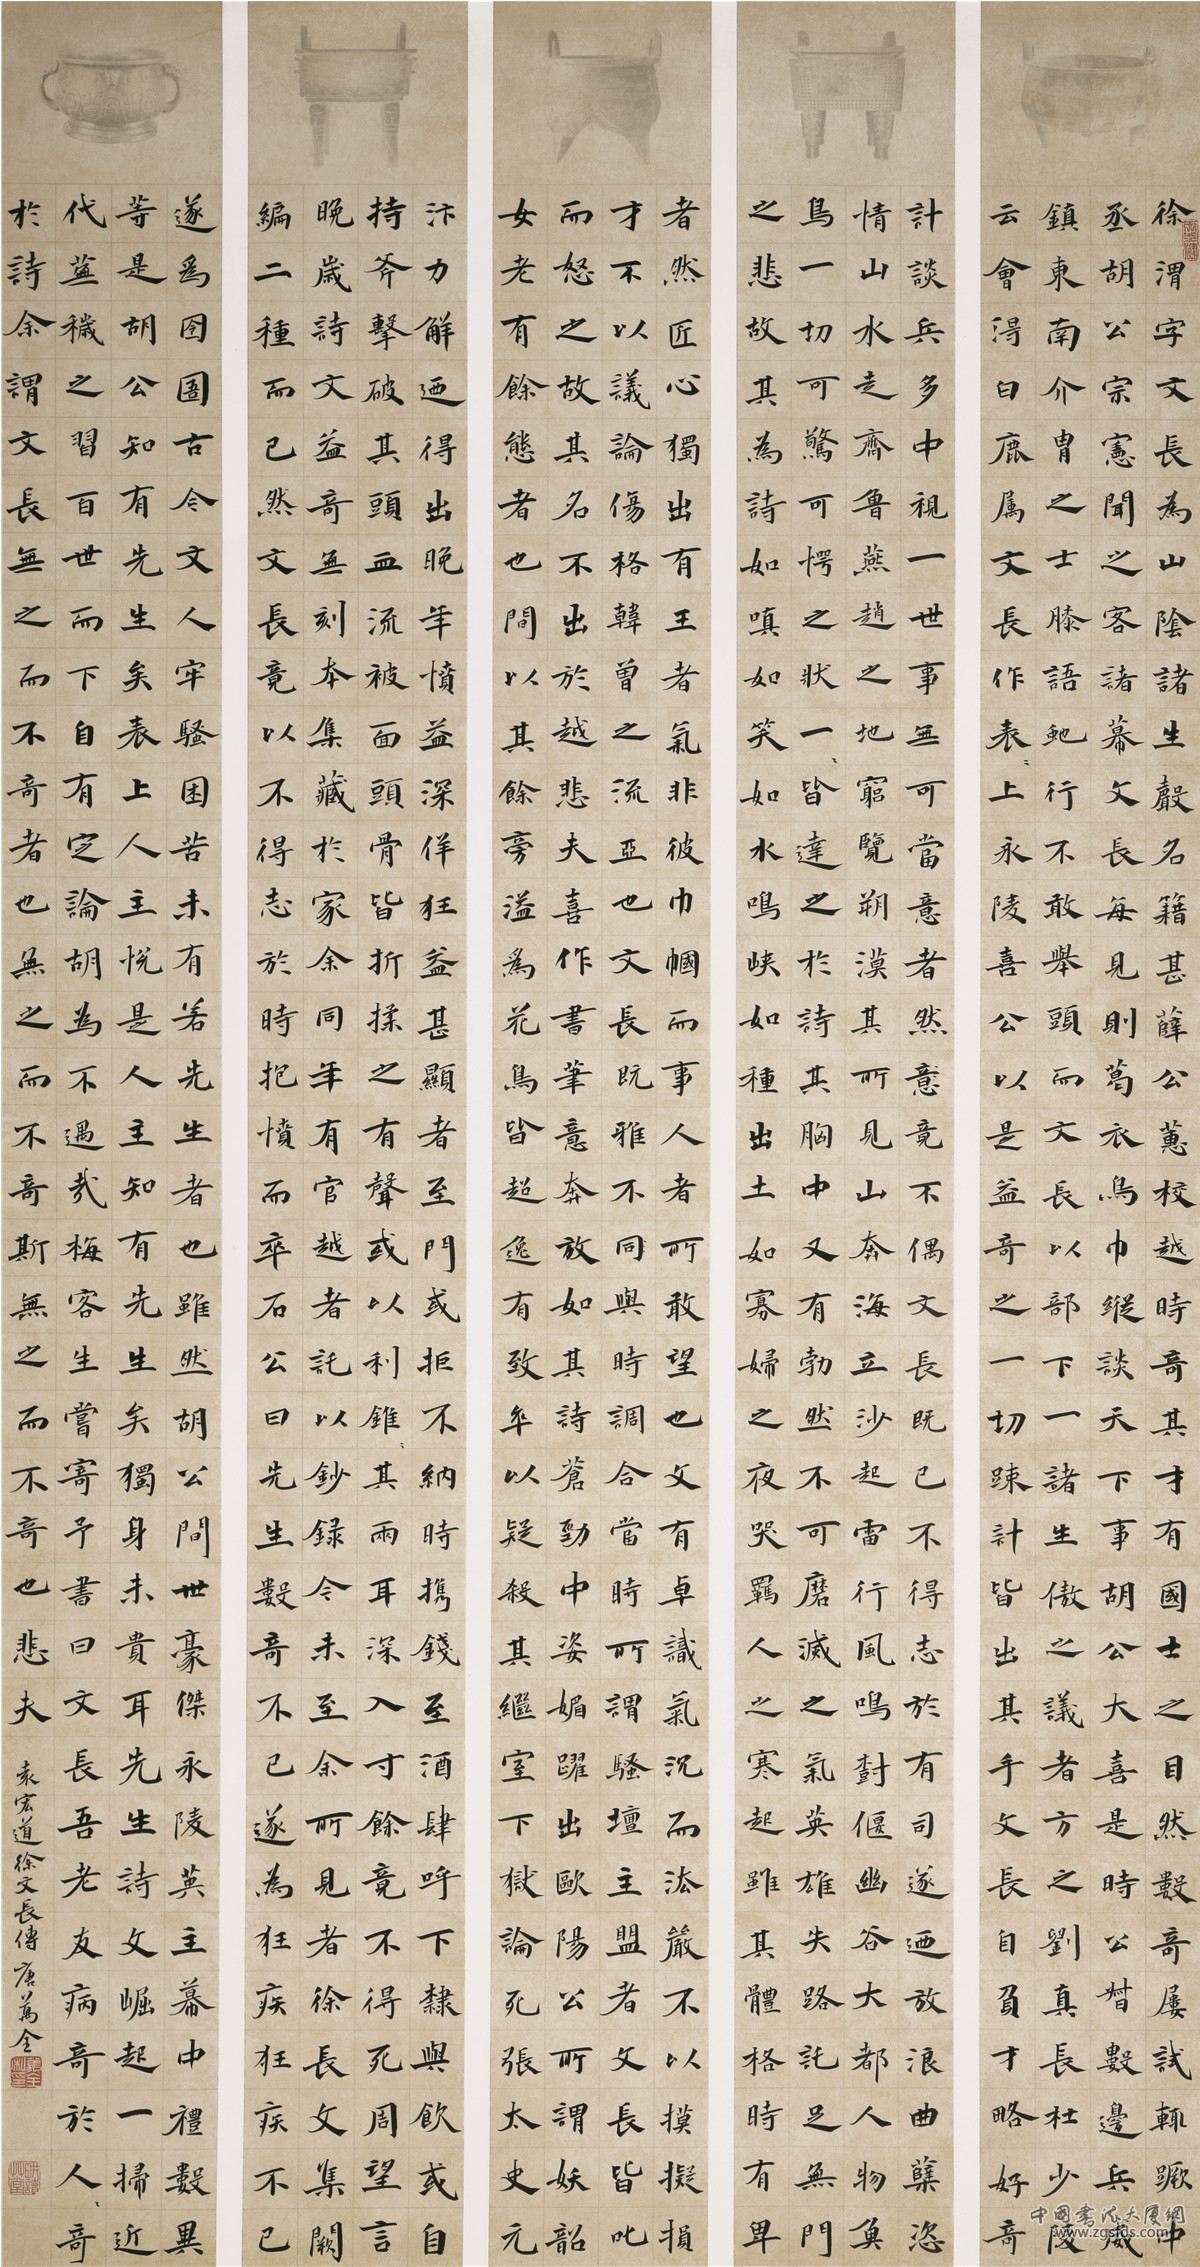 徐渭字文長為山陰諸生聲名籍甚薛公蕙校越時奇其才有國士之目然數奇屢試輒蹶中
丞胡公宗憲聞之客諸幕文長每見則葛衣烏巾縱談天下事胡公大喜是時公督數邊兵威
鎮東南介冑之士膝語虵行不敢舉頭而文長以部下一諸生傲之議者方之劉真長杜少陵
云會得白鹿属文長作表〻上永陵喜公以是益奇之一切疏計皆出其手文長自負才略好奇
計談兵多中視一世事無可當意者然意竟不偶文長既已不得志於有司遂迺放浪曲櫱恣
情山水走齊魯燕趙之地窮覽朔漠其所見山奔海立沙起雷行風鳴樹偃幽谷大都人物魚
鳥一切可驚可愕之狀一〻皆達之於詩其胸中又有勃然不可磨滅之氣英雄失路託足無門
之悲故其為詩如嗔如笑如水鳴峽如種出土如寡婦之夜哭羈人之寒起雖其體格時有卑
者然匠心獨出有王者氣非彼巾幗而事人者所敢望也文有卓識氣沉而法嚴不以摸擬損
才不以議論傷格韓曾之流亞也文長既雅不同與時調合當時所謂騷壇主盟者文長皆叱
而怒之故其名不出於越悲夫喜作書筆意奔放如其詩蒼勁中姿媚躍出歐陽公所謂妖韶
女老有餘態者也間以其餘旁溢為花鳥皆超逸有致卒以疑殺其繼室下獄論死張太史元
汴力解迺得出晚年憤益深佯狂益甚顯者至門或拒不納時攜錢至酒肆呼下隸與飲或自
持斧擊破其頭血流被面頭骨皆折揉之有聲或以利錐〻其兩耳深入寸餘竟不得死周望言
晚歲詩文益奇無刻本集藏於家余同年有官越者託以鈔録今未至余所見者徐長文集闕
編二種而已然文長竟以不得志於時抱憤而卒石公曰先生數奇不已遂為狂疾狂疾不已
遂為囹圄古今文人牢騷困苦未有若先生者也雖然胡公間世豪傑永陵英主幕中禮數異
等是胡公知有先生矣表上人主悅是人主知有先生矣獨身未貴耳先生詩文崛起一掃近
代蕪穢之習百世而下自有定論胡為不遇哉梅客生嘗寄予書曰文長吾老友病奇於人〻奇
於詩余謂文長無之而不奇者也無之而不奇斯無之而不奇也悲夫
袁宏道徐文長傳 唐萬全
中国书法大厦网
www.zgsfds.com